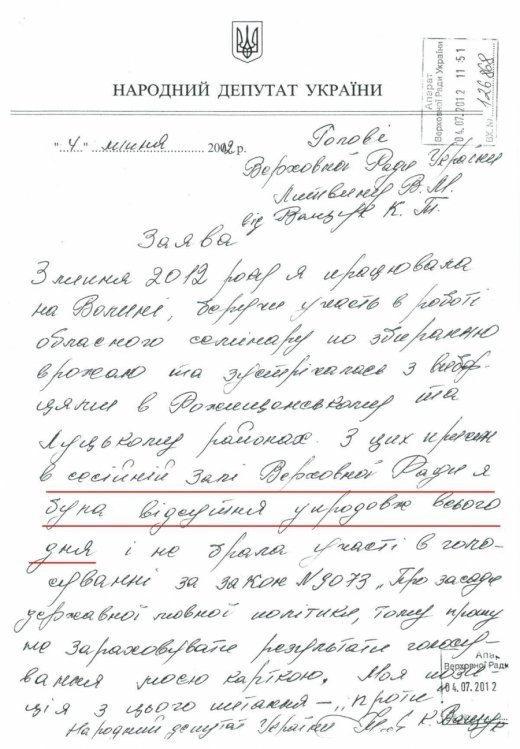 НАРОДНИЙ ДЕПУТАТ УКРАЇНИ
Апарат
Верховної Ради України
04.07.2012 11 51
Вх.№ 126868
"4" липня 2012 р.
Голові
Верховної Ради України
Литвину В.М.
від Ващук К.Т.
Заява
3 липня 2012 року я працювала
на Волині, беручи участь в роботі
обласного семінару по збиранню
врожаю та зустрічалась з вибор-
цями в Рожищанському та
Луцькому районах. З цих причин
в сесійній залі Верховної Ради я
була відсутня упродовж всього
дня і не брала участі в голо-
суванні за закон №9073 „Про засади
державної мовної політики, тому прошу
не зараховувати результати голосу-
вання моєю карткою. Моя пози-
ція з цього питання – „проти
Апа
Верховної Ради
04.07.2012
Народний депутат України К. Ващук